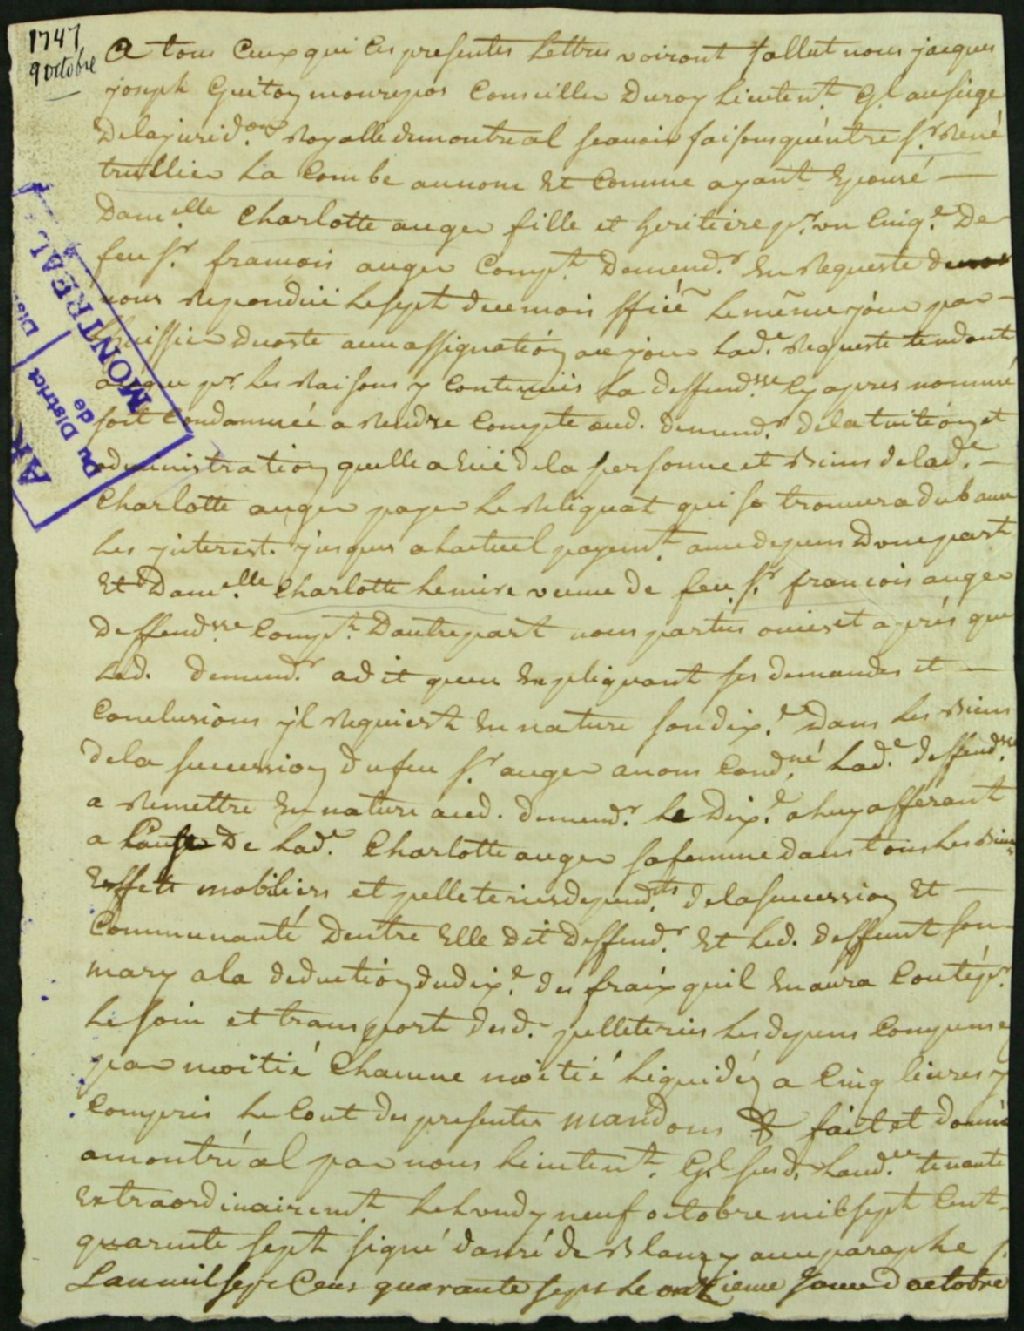 1747
9 octobre
A tous Ceux qui Ces presentes Lettres voiront Sallut nous jacques
joseph Guiton monrepos Conseiller Du roy Lieutent. Gl au siege
De la jurid.on Royalle de montreal scavoir faisons qu'entre Sr. René
trullier La Combe au nom Et Comme ayant Epousé —
Dam.elle Charlotte auger fille et heritiere pr. un Cinq.e De
feu Sr. francois auger Compt. Demend.r En Requeste de
nous Repondüe le sept du mois sfiée le même jour par —
huissier de coste avec assignation a ce jour Lad.e Requeste tendante
a ce que pr. les Raisons y Contenües La deffend.sse Cy apres nommée
soit Condamnée a Rendre Compte aud. Demend.r de la tuition et
administration quelle a Eüe de la personne et Biens de lad.e —
Charlotte auger payer le Reliquat qui se trouvera dub avec
les jnterest jusques a l'actuel payemt. avec depens D'une part
Et Dam.elle Charlotte Lemire veuve de feu Sr. francois auger
Deffend.sse Compt. D'autre part nous parties ouies et aprés que
Led. Demend.r a dit que en Expliquant ses demandes et —
Conclusions jl Requiert En nature son dix.e Dans les Biens
de la succession du feu Sr. auger avons Cond.né Lad.e deffend.sse
a Remettre En nature aud. demend.r Le Dix.e a luy afferant
a Cause De Lad.e Charlotte auger sa femme dans tous les Biens
Effets mobiliers et pelleteries depend.ts de la succession Et —
Communauté D'entre Elle dit deffend.r Et Led. deffunt son
mary a la deduction du dix.e des fraix quil En aura Couté pr.
le soin et transporte desd. pelleteries les depens Compensés
par moitié Chacune moitié liquidéz a Cinq livres y
Compris le Cout des presentes mandons & fait et donné
a montréal par nous Lieutent. Gl susd. l'aud.ce tenante
Extraordinairemt. le Lundy neuf octobre mil sept Cent
quarente sept signé danré de Blanzy avec paraphe
L'an mil sept Cens quarante sept le onzieme Jour d'octobre
Du District
de
MONTREAL